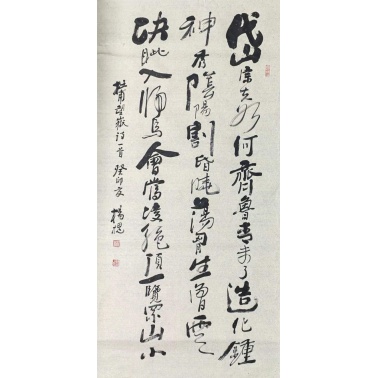 岱宗夫如何齊魯青未了造化鍾
神秀陰陽割昏曉蕩胸生曾雲
決眦入歸鳥會當凌絕頂一覽眾山小
杜甫望嶽詩一首 癸卯夏 楊